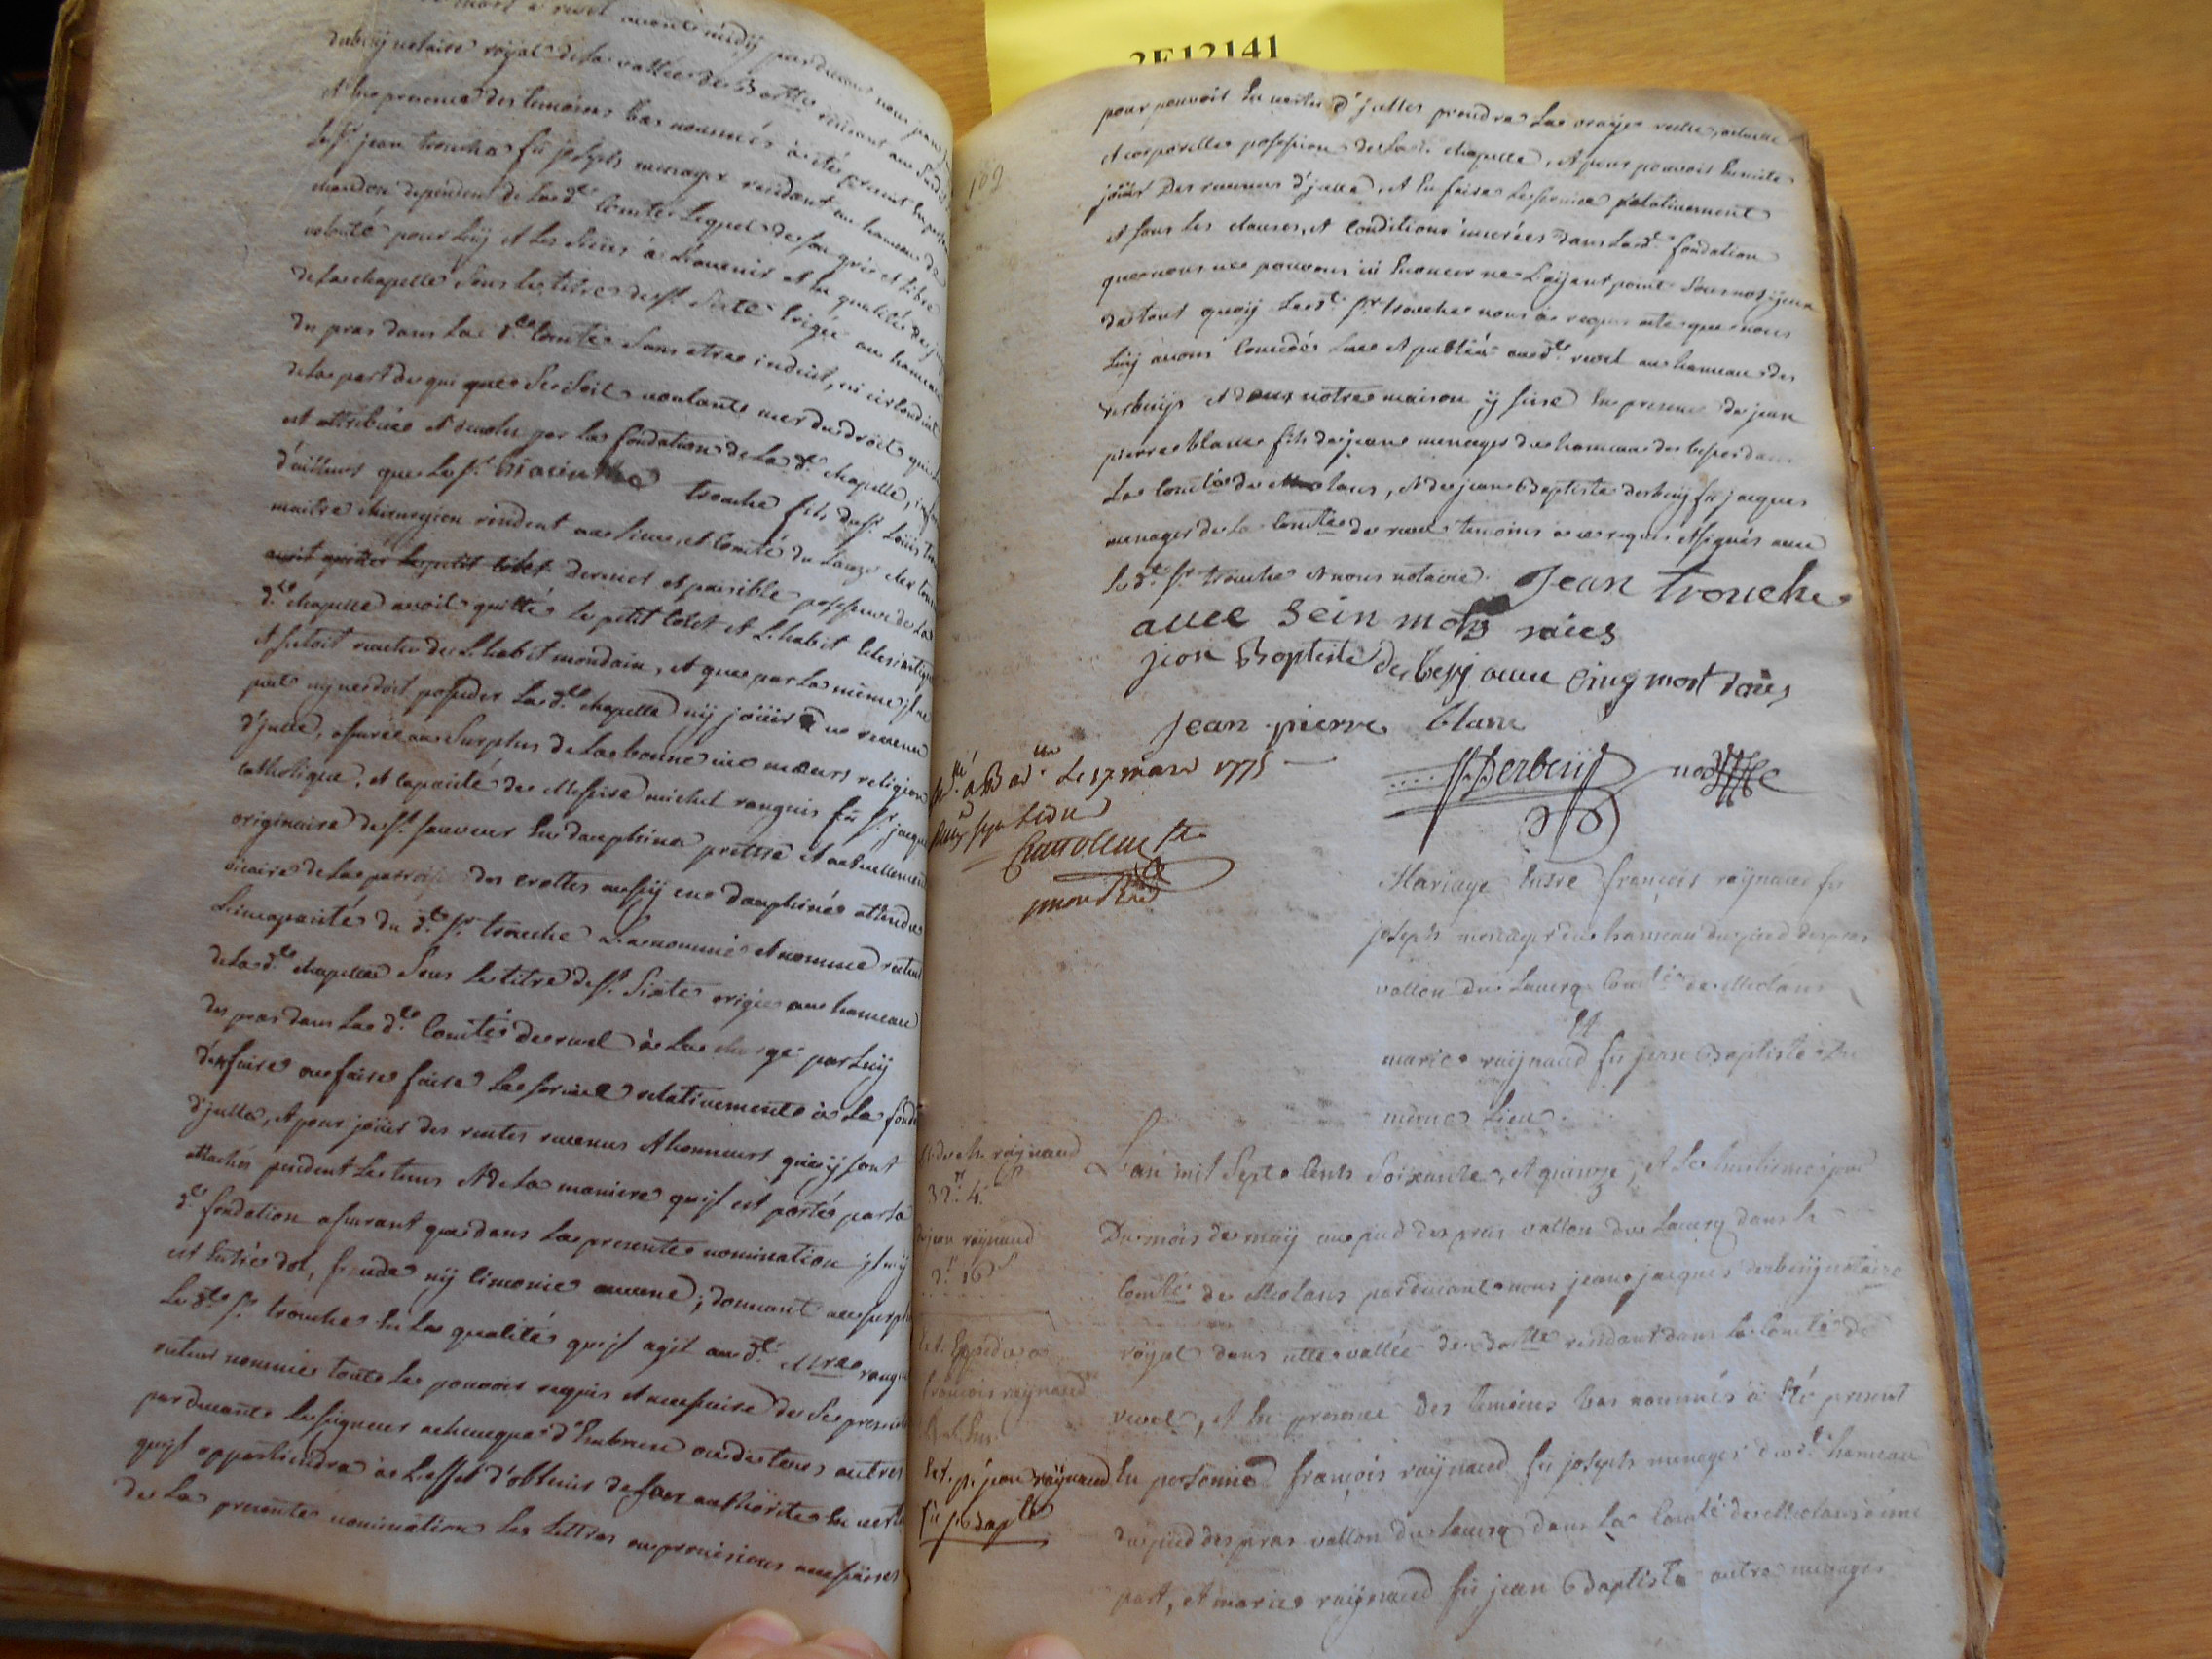 mort a revel avant midy pardevant nous jean
derbeij notaire roÿal de la vallée de Bar.tte residant au
et en presence des temoins bas nommés a été present en person
le s.r jean trouche fû joseph menager residant au hameau de
dependent de lad.e Comté lequel de son gré et libre
volonté pour luy et les siens à l'avenir et en qualité de
de la chapelle sous le titre de s.t Sixte erigée au hameau
des pras dans la d.e Comté sans etre induit, ni
de la part de qui que se soit voulant user du droit qui
est attribué et devolu par la fondation de la d.e chapelle,
d'ailleurs que le s.r hiacinthe trouche fils du s.r Loüis
maitre chirurgien residant au lieu et Comté du Lauzet
avoit quitter le petit colet dernier et paisible possesseur de la
d.e chapelle avoit quitté le petit colet et l'habit eclesiastique
et s'etoit revetu de l'habit mondain, et que par la même il ne
peut ny ne doit posseder la d.e chapelle ny joüir ce revenu
d'jcelle, assuré au surplus de la bonne vie mœurs religion
catholique, et capacité de Messire michel rouguis fû s.r jacques
originaire de s.t sauveur en dauphiné prêtre et actuellement
vicaire de la parroisse des crottes aussy en dauphiné attendu
l'incapacité du d.t s.r trouche a nommé et nomme recteur
de la d.e chapelle sous le titre de s.t Sixte erigée au hameau
des pras dans la d.e Comté de revel à la charge par luy
d'en faire ou faire faire le service relativement à la fond
d'jcelle, et pour joüir des rentes revenus et honneurs qui y sont
attachés pendent le tems et de la maniere qu'jl est porté par la
d.e fondation assurant que dans la presente nomination jl ny
est entré dol, fraude ny simonie aucune; donnant au surplus
le d.t s.r trouche en la qualité qu'jl agit au d.t M.re
recteur nommé tout le pouvoir requis et necessaire de se presenter
pardevant le seigneur archeveque d'Embrun ou de tous autres
qu'jl appartiendra à l'effet d'obtenir de son authorité en vertu
de la presente nomination les lettres ou provisions necessaires
2E12141
182
pour pouvoir en vertu d'jcelles prendre la vraÿe reelle, actuelle
et corporelle possession de la d.e chapelle, et pour pouvoir ensuite
joüir des revenus d'jcelle, et en faire le service relativement
et sous les clauses, et conditions inserées dans la d.e fondation
que nous ne pouvons ici enoncer ne l'ayant point sous nos yeux
de tout quoy le d.t s.r trouche nous a requis acte que nous
luy avons concedé fait et publié au d.t revel au hameau des
derbeijs et dans notre maison y size en presence de jean
pierre blanc fils de jean menager du hameau des besses dans
la Comté de Meolans, et de jean Baptiste derbeij fû jacques
menager de la Comté de revel temoins a ce requis et signés avec
le d.t s.r trouche et nous notaire. Jean trouche
avec sein mots raiés
jean Baptiste derbeij avec cinq mot raiés
Jean pierre blanc
JJDerbeij no.re
a Bar.tte le 17 mars 1775
Mariage entre françois raÿnaud fû
joseph menager du hameau du pied des pras
vallon du Laverq Comté de Meolans
Et
marie raÿnaud fû jean Baptiste du
même Lieu
L'an mil sept cents soixante, et quinze, et le huitieme jour
Du mois de maÿ au pied des pras vallon du Laverq dans la
Comté de Meolans pardevant nous jean jacques derbeij notaire
roÿal dans cette vallée de Bar.tte residant dans la Comté de
revel, et en presence des temoins bas nommés a été present
en personne françois raÿnaud fû joseph menager du d.t hameau
du pied des pras vallon du Laverq dans la Comté de Meolans d'une
part, et marie raÿnaud fû jean Baptiste autre menager
raÿnaud
jean raÿnaud
Ext. Expedié a
françois raÿnaud
Ext. p.r jean raÿnaud
fû j. Bap.te